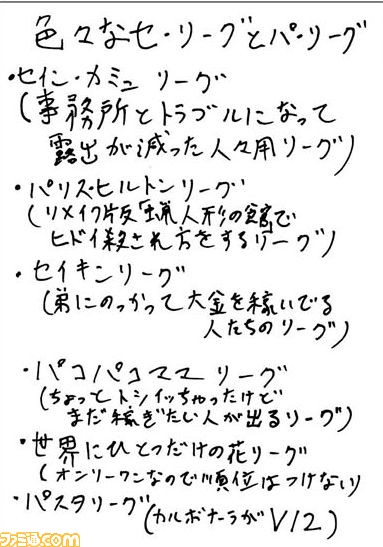 色々なセ・リーグとパ・リーグ
・セイン・カミュ リーグ
(事務所とトラブルになって
露出が減った人々用リーグ)
・パリス・ヒルトンリーグ
(リメイク版「蝋人形の館」で
ヒドイ殺され方をするリーグ)
・セイキンリーグ
(弟にのっかって大金を稼いでる
人たちのリーグ)
・パコパコママリーグ
(ちょっとトシイッちゃったけど
まだ稼ぎたい人が出るリーグ)
・世界にひとつだけの花リーグ
(オンリーワンなので順位はつけない)
・パスタリーグ
(カルボナーラがV12)
ファミ通.com